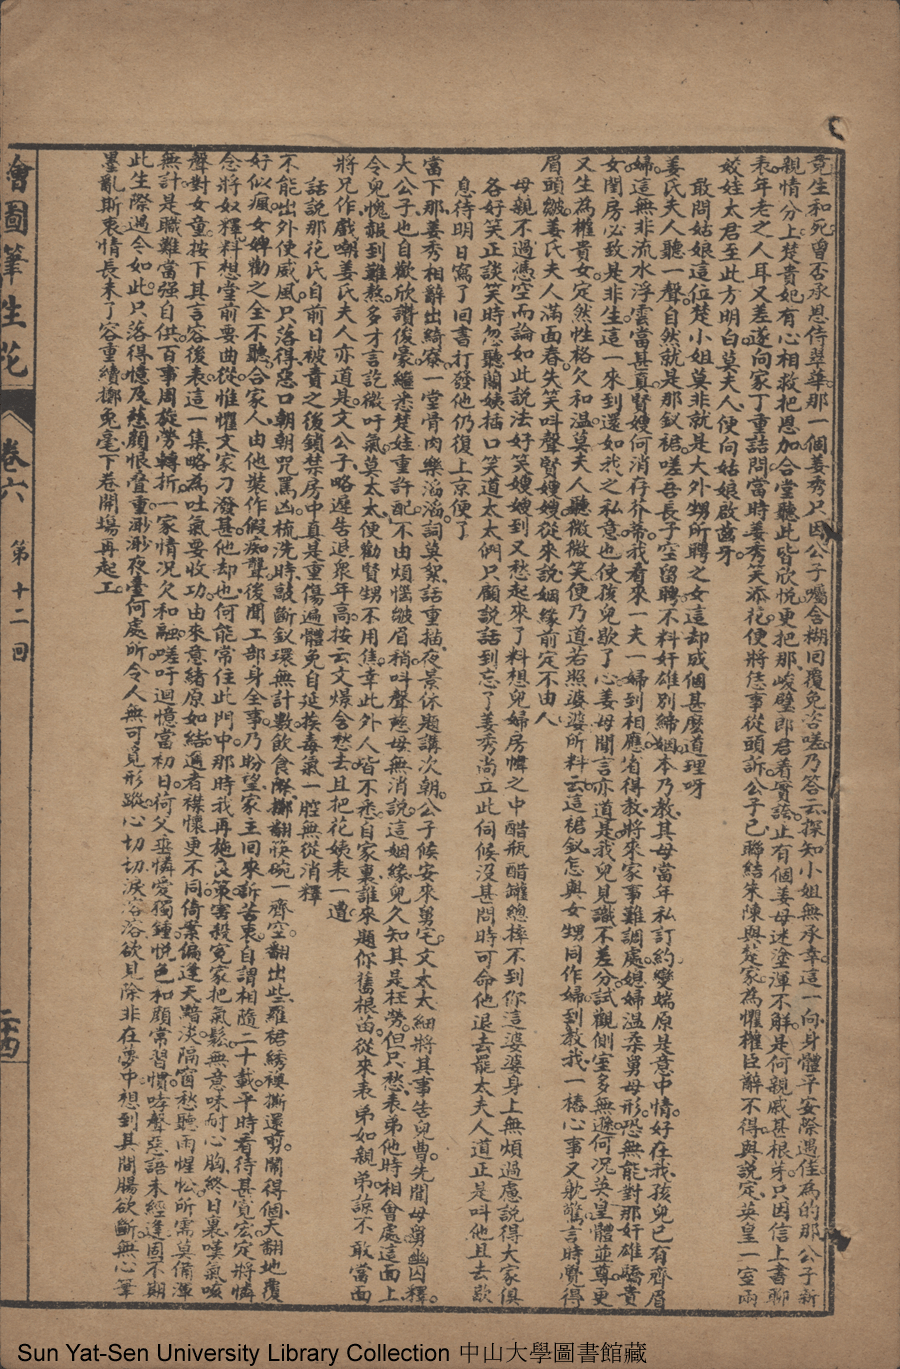 竟生和死曾否承恩侍翠華那一個姜秀只因公子囑含糊回覆免咨嗟乃答云探知小姐無承幸這一向身體平安際遇佳為的那公子新
親情分上楚貴妃有心相救把恩加合堂聽此皆欣悅更把那峻壁郎君着實誇止有個姜母迷塗渾不解是何親戚甚根芽只因信上書聊
表年老之人耳又差遂向家丁重詰問當時姜秀笑添花便將恁事從頭訴公子已聯結朱陳與楚家為懼權臣辭不得與說定英皇一室兩
姣娃太君至此方明白莫夫人便向姑娘啟齒牙
敢問姑娘這位楚小姐莫非就是大外甥所聘之女這却成個甚麼道理呀
姜氏夫人聽一聲自然就是那釵裙嗟吾長子空留聘不料奸雄別締姻本乃教其母當年私訂約變端原是意中情好在我孩兒已有齊眉
婦這無非流水浮雲當甚真賢嫂何消存芥蒂我看來一夫一婦到相應省得教將來家事難調處媳婦溫柔舅母形恐無能對那奸雄驕貴
女閨房必致是非生這一來到還如我之私意也使孩兒歇了心姜母聞言亦道是我兒見識不差分試觀側室多無遜何況英皇體並尊更
又生為權貴女定然性格欠和溫莫夫人聽微微笑便乃道若照婆婆所料云這裙釵怎與女甥同作婦到教我一樁心事又躭驚言時覺得
眉頭皺姜氏夫人滿面春失笑呌聲賢嫂嫂從來說姻緣前定不由人
母親不過憑空而論如此說法好笑嫂嫂到又愁起來了料想兒婦房幃之中醋瓶醋罐總摔不到你這婆婆身上無煩過慮說得大家俱
各好笑正談笑時忽聽蘭姨插口笑道太太們只顧說話到忘了姜秀尚立此伺候沒甚問時可命他退去罷太夫人道正是呌他且去歇
息待明日寫了回書打發他仍復上京便了
當下那姜秀相辭出綺寮一堂骨肉樂滔滔詞莫絮話重描夜景休題講次朝公子候安來舅宅文太太細將其事告兒曹先聞母舅幽囚釋
大公子也自歡欣謝後蒙繼悉楚娃重許配不由煩惱皺眉稍呌聲慈母無消說這姻緣兒久知其是枉勞但只愁表弟他時相會處這面上
令兒愧赧到難熬多才言訖微吁氣莫太太便勸賢甥不用焦幸此外人皆不悉自家裏誰來題你舊根苗從來表弟如親弟諒不敢當面
將兄作戲嘲姜氏夫人亦道是文公子略遲告退衆年高按云文爆含愁去且把花姨表一遭
話說那花氏自前日被責之後鎖禁房中真是重傷遍體免自延挨毒氣一腔無從消釋
不能出外使威風只落得惡口朝朝咒罵凶梳洗時敲斷釵環無計數飲食際擲翻筷碗一齊空翻出些羅裙綉襖撕還剪鬧得個天翻地覆
好似瘋女婢勸之全不聽合家人由他裝作假痴聾後聞工部身全事乃盼望家主回來訴苦衷自謂相隨二十載平時看待甚寬宏定將憐
念將奴釋料想堂前要曲從惟懼文家刁潑甚他却也何能常住此門中那時我再施良策害殺寃家把氣鬆無意味耐心胸終日裏嘆氣咳
聲對女童按下其言容後表這一集略為吐氣要收功由來意緒原如結邇者襟懷更不同倚案偏逢天黯淡隔窗愁聽雨惺忪所需莫備渾
無計是職難當强自供百事周旋勞轉折一家情况欠和融嗟吁迴憶當初日荷父垂憐愛獨鍾悅色和顏常習慣哮聲惡語未經逢固不期
此生際遇今如此只落得憶及慈顏恨疊重渺渺夜臺何處所令人無可覓形蹤心切切淚溶溶欲見除非在夢中想到其間腸欲斷無心筆
墨亂斯衷情長未了容重續擲兔毫下卷開塲再起工
繪圖筆生花　卷六　第十二回　二十四
Sun Yat-Sen University Library Collection 中山大學圖書館藏